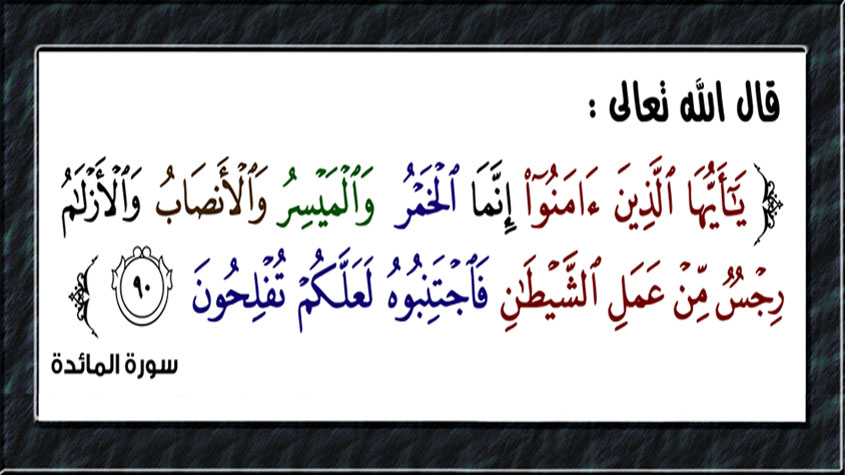 قال الله تعالى :
﴿ يَٰٓأَيُّهَا ٱلَّذِينَ ءَامَنُوٓاْ إِنَّمَا ٱلْخَمْرُ وَٱلْمَيْسِرُ وَٱلْأَنصَابُ وَٱلْأَزْلَٰمُ
رِجْسٌ مِّنْ عَمَلِ ٱلشَّيْطَٰنِ فَٱجْتَنِبُوهُ لَعَلَّكُمْ تُفْلِحُونَ ٩٠ ﴾
سورة المائدة